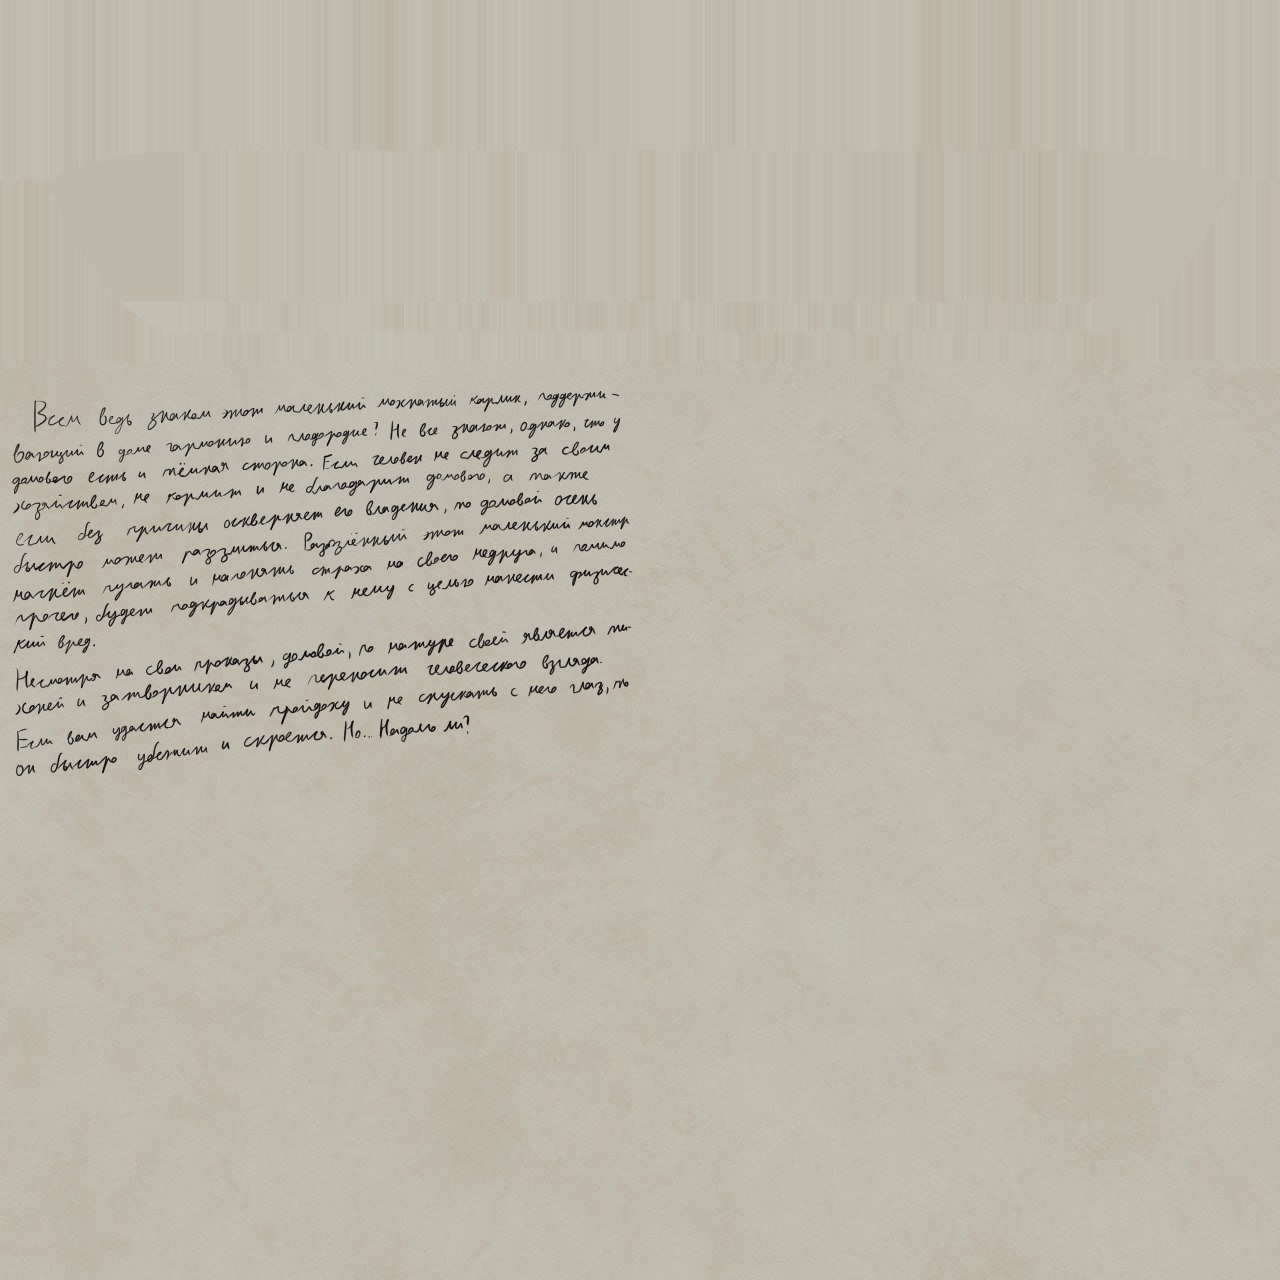 Всем ведь знаком этот маленький мохнатый карлик, поддержи-
вающий в доме гармонию и плодородие? Не все знают, однако, что у
домового есть и тёмная сторона. Если человек не следит за своим
хозяйством, не кормит и не благодарит домового, а также
если без причины оскверняет его владения, то домовой очень
быстро может разозлиться. Разозлённый этот маленький монстр
начнёт пугать и нагонять страха на своего недруга, и помимо
прочего, будет подкрадываться к нему с целью нанести физичес-
кий вред.
Несмотря на свои проказы, домовой, по натуре своей является ти-
хоней и затворником и не переносит человеческого взгляда.
Если вам удастся найти пройдоху и не спускать с него глаз, то
он быстро убежит и скроется. Но... Надолго ли?